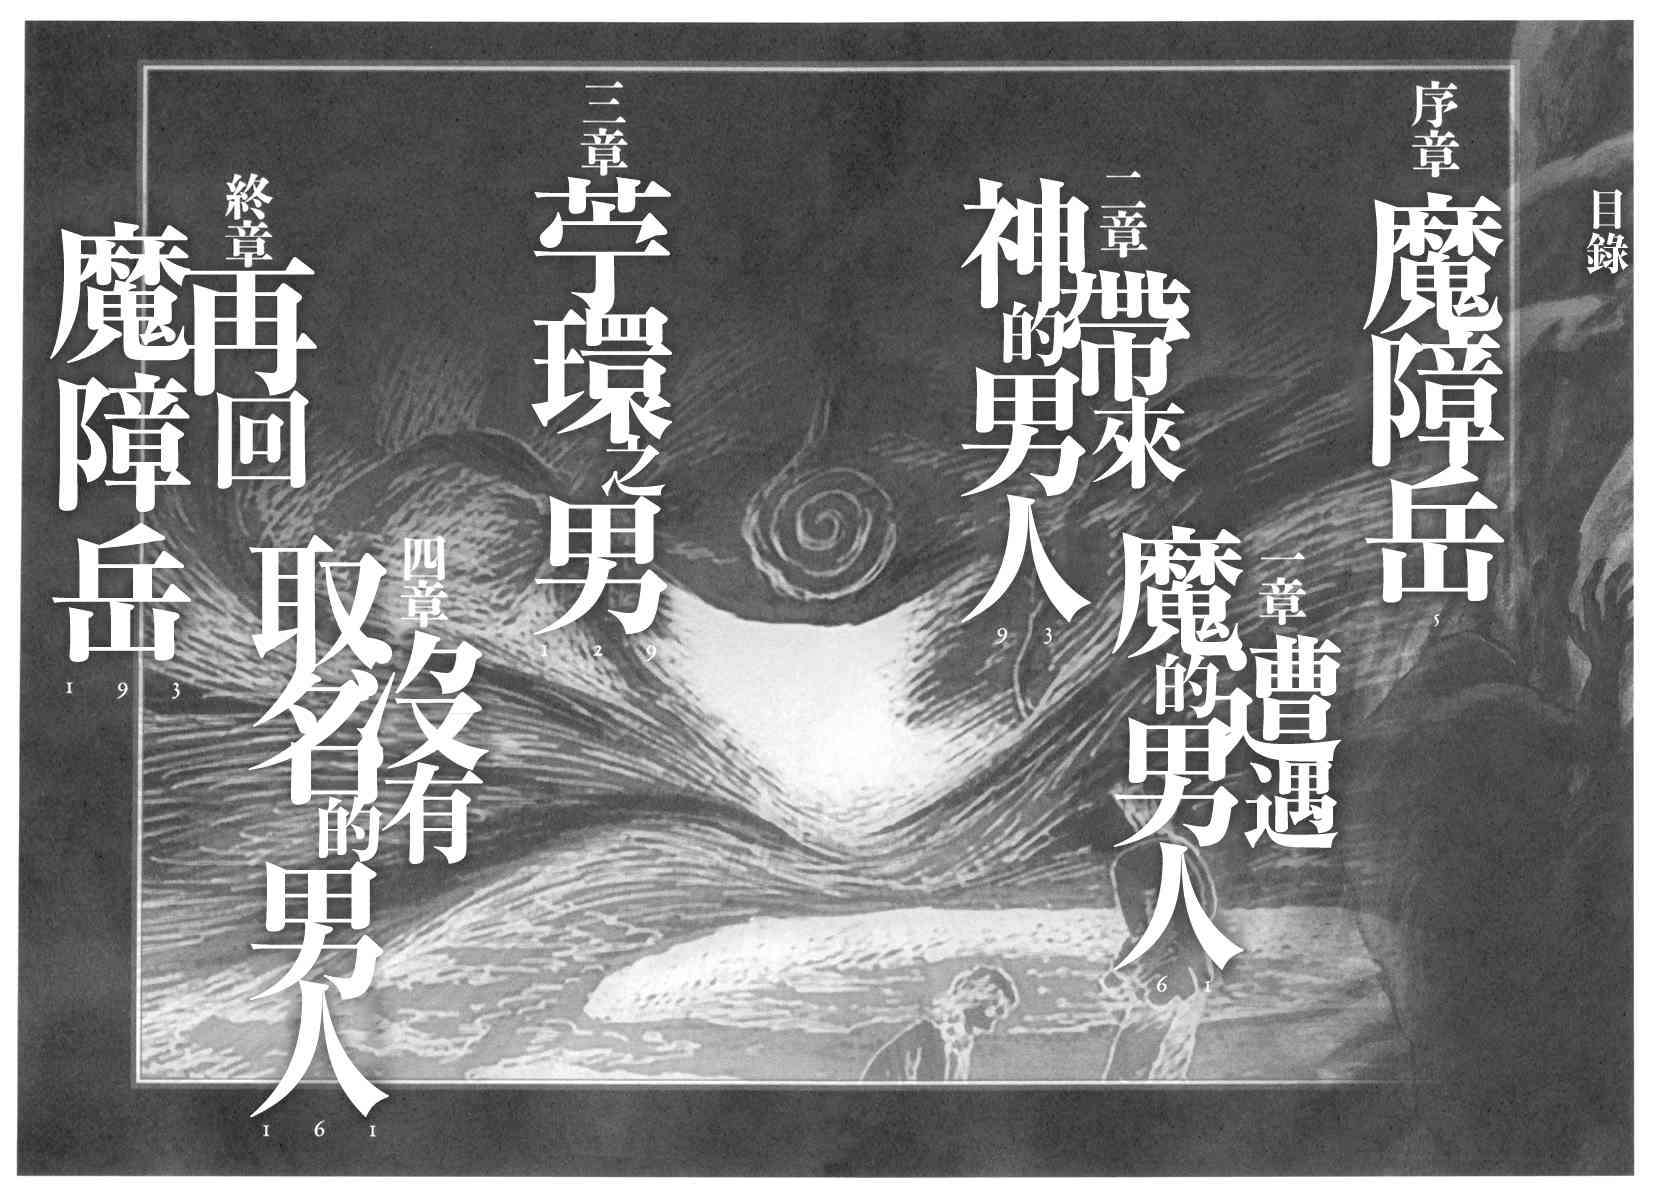 目錄
序章
魔障岳
5
一章
遭遇
魔的男人
61
二章
帶來
神的男人
93
三章
苧環之男
129
四章
沒有
取名的男人
161
終章
再回
魔障岳
193